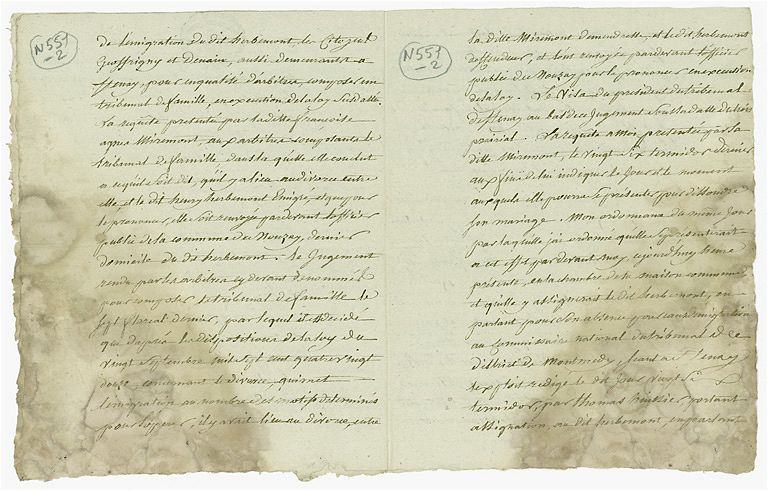 N557
-2
de lemigration du dit herbemont les Citoyens
et Denain, aussi demeurants a
Stenay, pour en qualité d'arbitres, composer un
tribunal de famille, en execution de la loy susdatté.
La requete presentée par la ditte françoise
agnes Miremont, aux arbitres composants le
tribunal de famille dans laquelle elle conclut
a ce quil soit dit, quil y a lieu au divorce entre
elle et le dit henry herbemont Emigré et que pour
le prononcer, elle soit renvoyée pardevant lofficier
public de la commune du Nouzay, dernier
domicile du dit herbemont. Le Jugement
rendu par les arbitres cy devant denommés
pour composer le tribunal de famille le
sept floreal dernier, par lequel il est decidé
que d'après les dispositions de la loy du
vingt septembre mil sept cent quatre vingt
douze, concernant le divorce, qui met
lemigration au nombre des motifs determinés
pour loperer, il y avait lieu au divorce, entre
N557
-2
la ditte Miremont demandresse, et le dit herbemont
deffendeur, et les a renvoyés pardevant lofficier
public du Nouzay pour le prononcer, en execution
de la loy. Le Visa du president du tribunal
de Stenay au bas de ce Jugement sous la datte du
prairial. La requete a moi presentée par la
ditte Miremont, le vingt six termidor dernier
aux fins de lui indiquer le Jour et le moment
auxquels elle pourra se presenter pour dissoudre
son mariage. Mon ordonnance du meme Jour
par laquelle j'ai ordonné quelle se presenterait
a cet effet pardevant moy, aujourdhuy heure
presente, en la chambre de la maison commune
et quelle y assignerait le dit herbemont, en
parlant pour son absence par son emigration
au Commissaire national du tribunal du
district de Montmedy, seant a Stenay
lexploit redigé le dit jour vingt six
termidor, par thomas huissier portant
assignation, au dit herbemont, en parlant